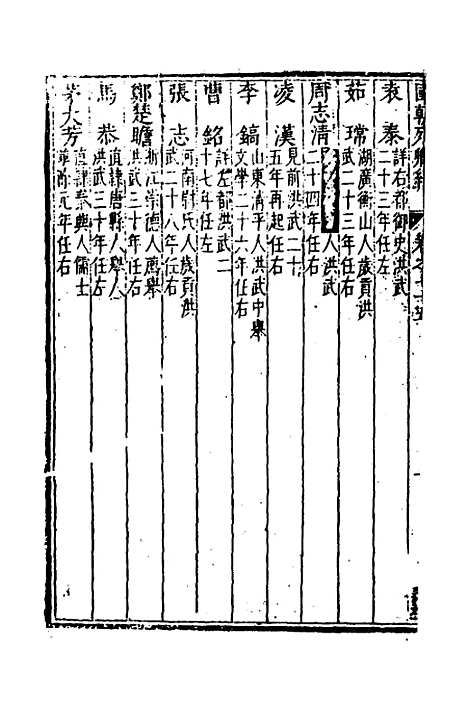 國朝列卿紀 卷之七十五
袁泰 詳右都御史洪武
二十三年任左
茹瑺 湖廣衡山人歲貢洪
武二十三年任右
周志清 人洪武
二十四年任右
凌漢 見前洪武二十
五年再起任右
李鎬 山東清平人洪武中舉
文學二十六年任右
曹銘 詳左都洪武二
十七年任左
張志 河南尉氏人歲貢洪
武二十八年任右
鄭楚瞻 浙江崇德人薦舉
洪武三十年任右
馬恭 直隸唐縣人舉人
洪武三十年任左
茅大芳 直隸泰興人儒士
革除元年任右